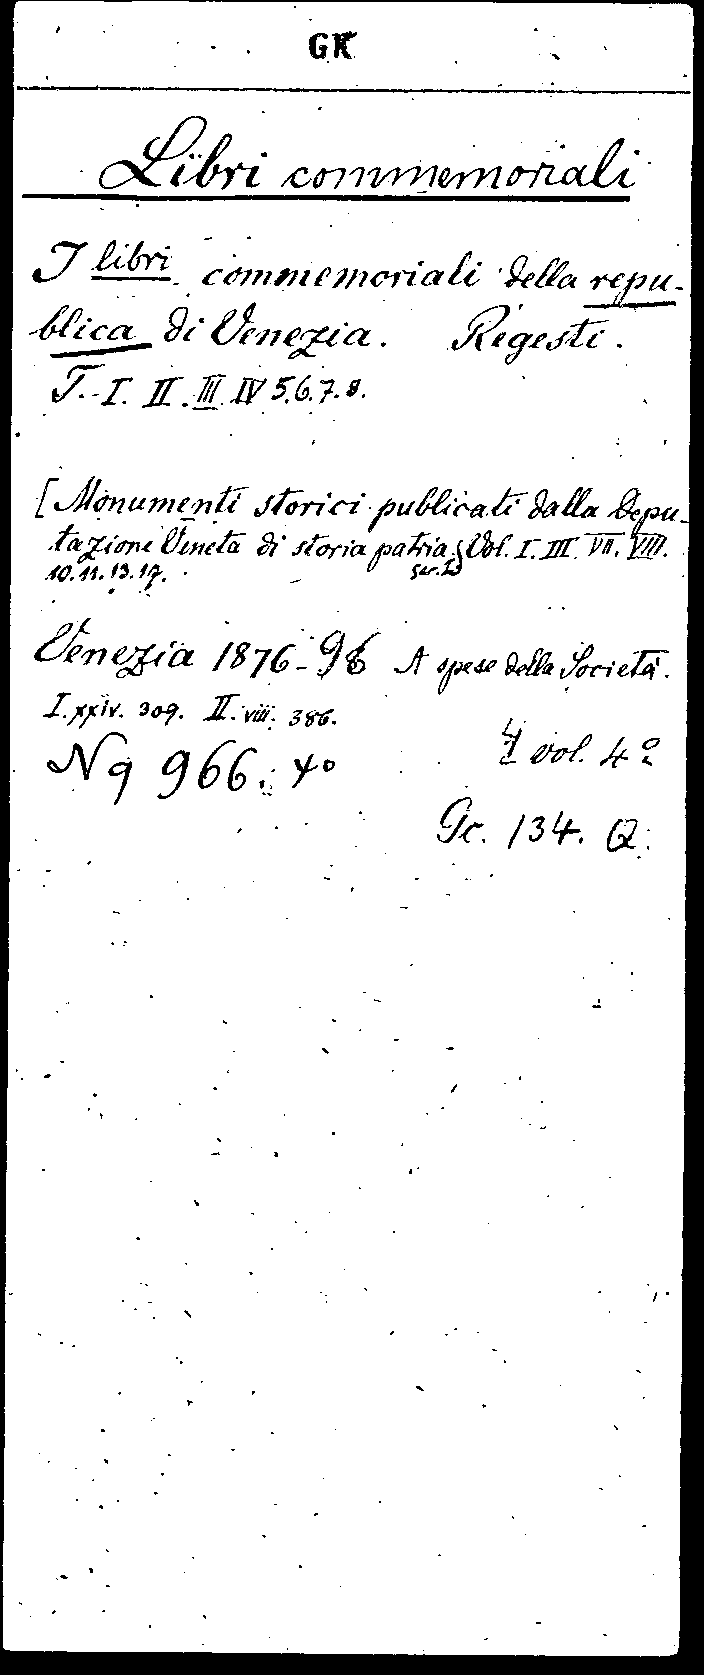 GK
Libri commemoriali
I libri commemoriali della repu-
blica di Venezia. Regesti.
T. I. II. III IV 5.6.7.8.
[Monumenti storici publicati dalla Depu-
tazione Veneta di storia patria. Vol. I. III. VII. VIII.
10.11.13.17. Ser. I
Venezia 1876-96 A spese della Società.
I. xxiv. 309. II. viii. 386.
4 vol. 4º
Nq 966. 4º
Gc. 134. Q.